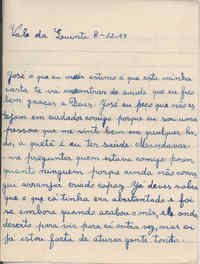 Vale da 8-12-
José o que eu mais estimo é que esta minha
carta te vá encontrar de saúde que eu fico
bem graças a Deus. José eu peço que não es
tejam em cuidado comigo porque eu sou uma
pessoa que me sinto bem em qualquer la
do, a questã é eu ter saúde. Mandavas-
me preguntar quem estava comigo por en
quanto ninguem porque ainda não conse
gui arranjar criada capaz. Já deves saber
que a que cá tinha era abestantada e foi
se embora quando acabou o mês, ela ainda
desceria para vir para cá outra vez, mas eu
já estou farta de aturar gente tonta...